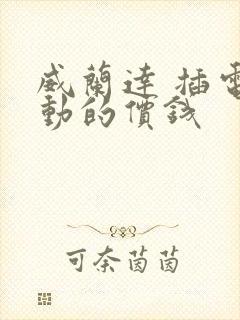 威蘭達 插電
動的價錢
可奈茵茵